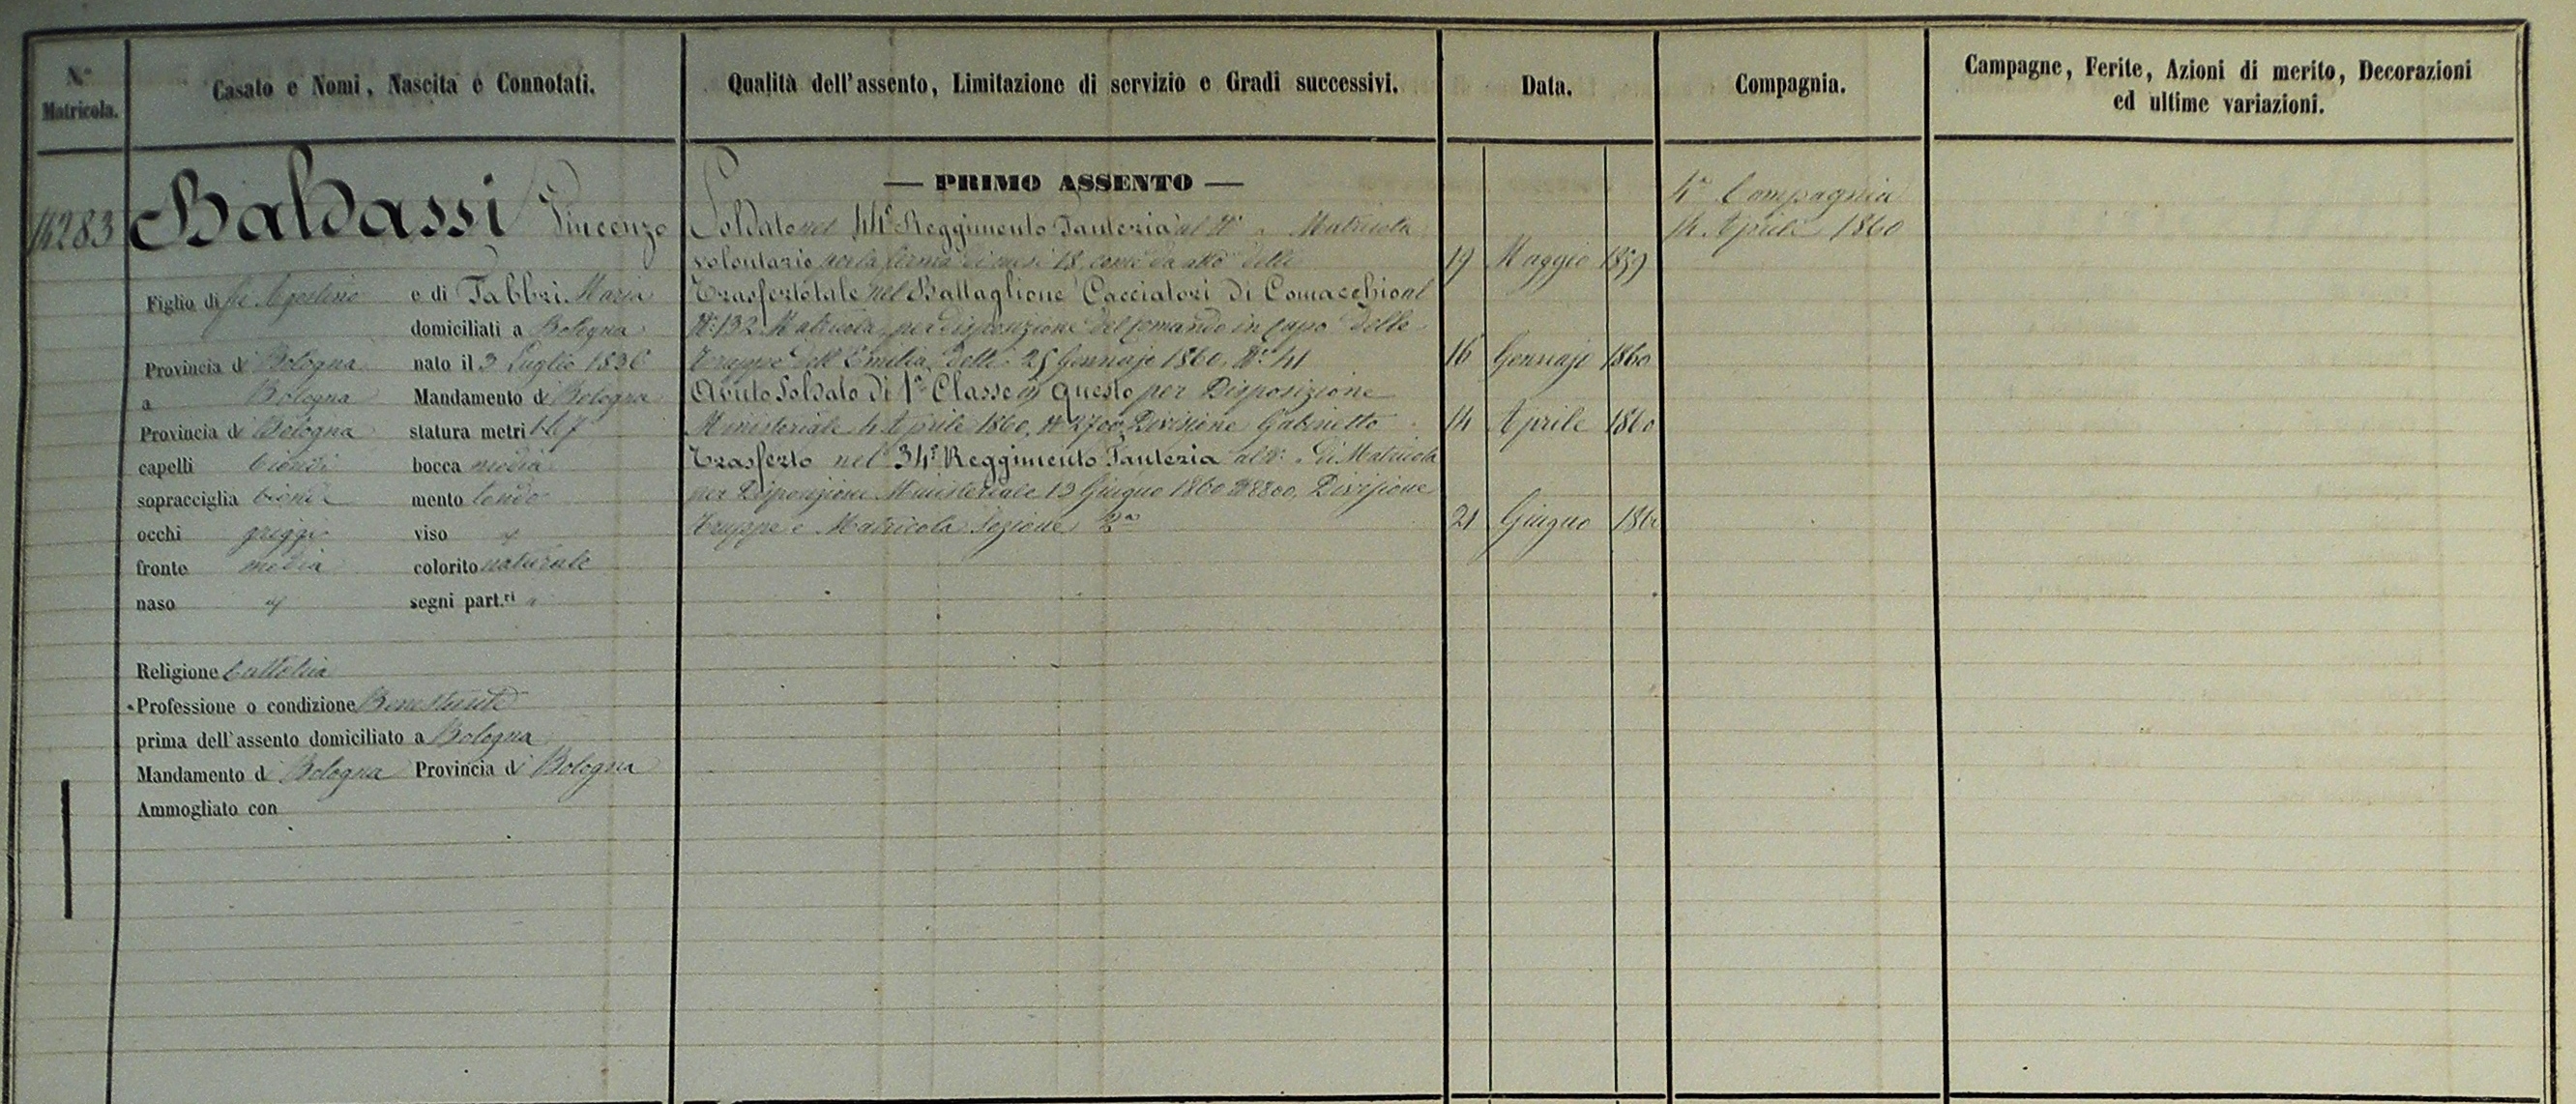 N.° Matricola.
Casato e Nomi, Nascita e Connotati.
Qualità dell'assento, Limitazione di servizio e Gradi successivi.
Data.
Compagnia.
Campagne, Ferite, Azioni di merito, Decorazioni
ed ultime variazioni.
Baldassi Vincenzo
Figlio di fu Agostino e di Fabbri Maria
domiciliati a Bologna
Provincia di Bologna nato il 3 Luglio 1836
a Bologna Mandamento di Bologna
Provincia di Bologna statura metri 1.67
capelli biondi bocca media
sopracciglia biondi mento tondo
occhi griggi viso
fronte media colorito naturale
naso segni part.ri
Religione Cattolica
Professione o condizione Benestante
prima dell'assento domiciliato a Bologna
Mandamento di Bologna Provincia di Bologna
Ammogliato con
— PRIMO ASSENTO —
Soldato nel 44° Reggimento Fanteria al N° " Matricola
volontario per la ferma di mesi 18, come da atto delli 19 Maggio 1859
Trasferto tale nel Battaglione Cacciatori di Comacchio al
N° 132 Matricola, per disposizione del Comando in Capo delle
Truppe dell'Emilia, delli 25 Gennajo 1860, N° 41 16 Gennajo 1860
Avuto Soldato di 1a Classe in questo per Disposizione
Ministeriale 4 Aprile 1860, N° 2700, Divisione Gabinetto 14 Aprile 1860
Trasferto nel 34° Reggimento Fanteria al N° " di Matricola
per Disposizione Ministeriale 12 Giugno 1860 N° 8800, Divisione
Truppe e Matricola Sezione 2a 21 Giugno 186
4a Compagnia
14 Aprile 1860